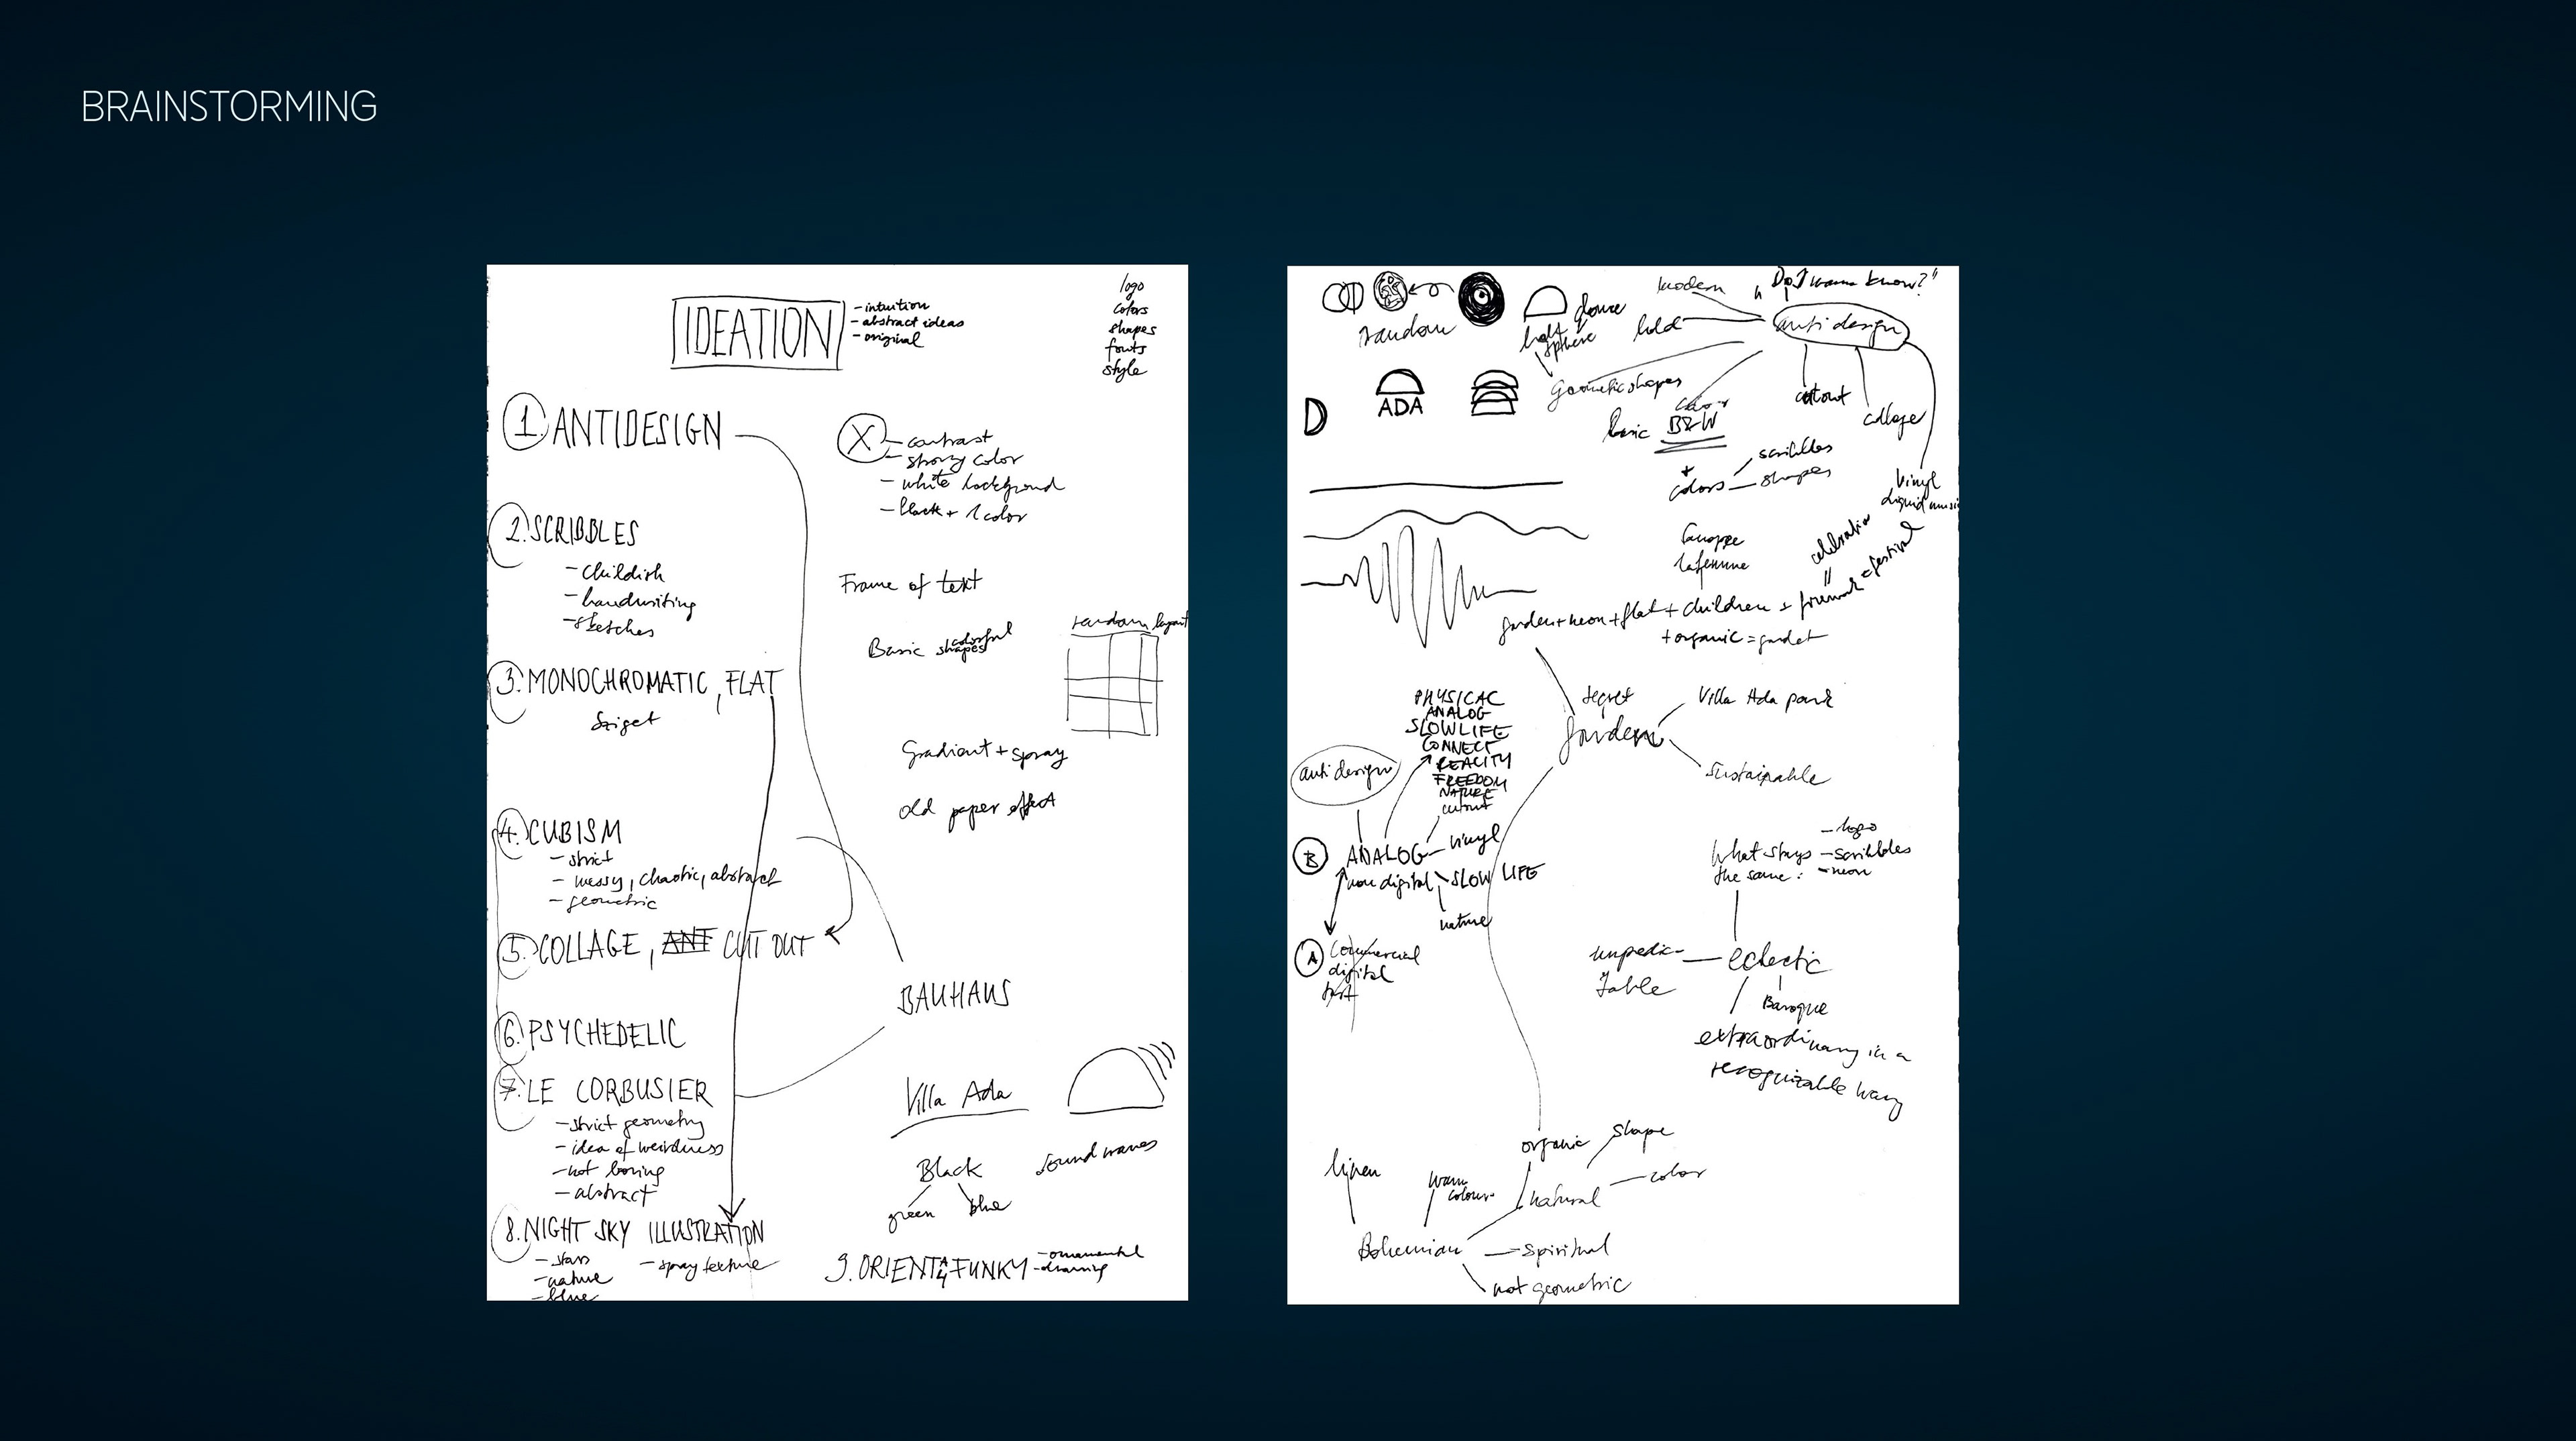 BRAINSTORMING
IDEATION
- intuition
- abstract ideas
- original
logo
colors
shapes
fonts
style
1. ANTIDESIGN
X
- contrast
- strong color
- white background
- black + 1 color
2. SCRIBBLES
- childish
- handwriting
- sketches
Frame of text
Basic colorful shapes
random layout
3. MONOCHROMATIC, FLAT
Sziget
Gradient + spray
old paper effect
4. CUBISM
- strict
- messy, chaotic, abstract
- geometric
5. COLLAGE, CUT OUT
BAUHAUS
6. PSYCHEDELIC
7. LE CORBUSIER
- strict geometry
- idea of weirdness
- not boring
- abstract
Villa Ada
sound waves
Black
green blue
8. NIGHT SKY ILLUSTRATION
- stars
- nature
- blue
- spray texture
9. ORIENTAL FUNKY
- ornamental
- drawing
random
dome
half sphere
modern
"Do I wanna know?"
bold
anti design
Geometric shapes
ADA
D
color
basic B&W
cutout
collage
+
colors
scribbles
shapes
vinyl
liquid music
celebration
=
festival
garden + neon + flat + children +
+ organic =
secret
garden
Villa Ada park
sustainable
PHYSICAL
ANALOG
SLOW LIFE
CONNECT
REALITY
FREEDOM
NATURE
cutout
anti design
B ANALOG
vinyl
non digital
SLOW LIFE
nature
A Commercial
digital
What stays
the same:
- logo
- scribbles
- neon
eclectic
Baroque
extraordinary in a
recognizable way
organic
shape
natural
color
linen
warm
colours
Bohemian
spiritual
not geometric